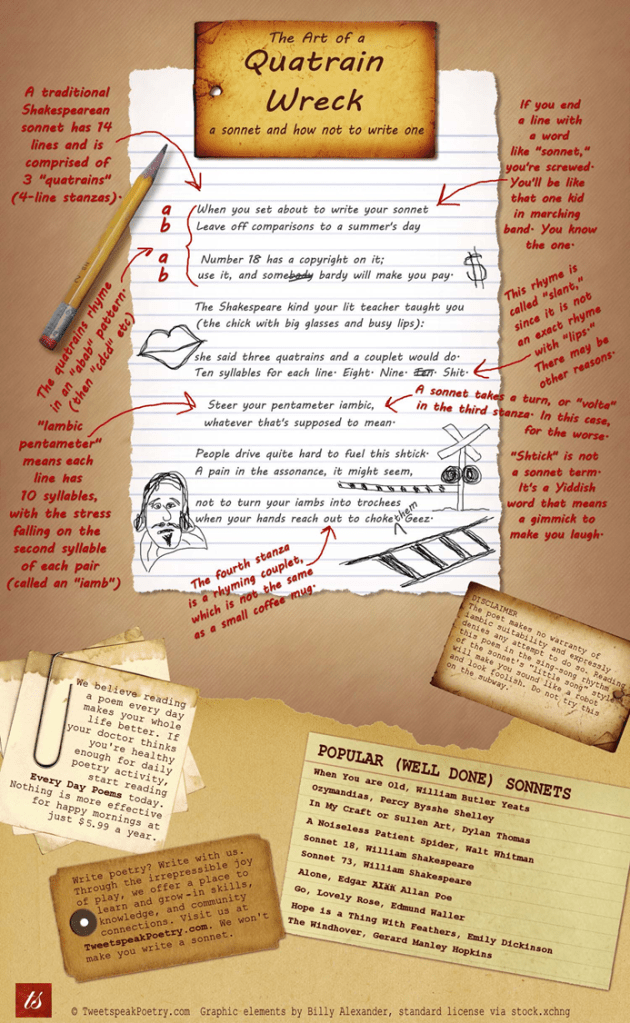 The Art of a
Quatrain
Wreck
a sonnet and how not to write one
A traditional
Shakespearean
sonnet has 14
lines and is
comprised of
3 "quatrains"
(4-line stanzas).
If you end
a line with
a word
like "sonnet,"
you're screwed.
You'll be like
that one kid
in marching
band. You know
the one.
a When you set about to write your sonnet
b Leave off comparisons to a summer's day
a Number 18 has a copyright on it;
b use it, and somebody bardy will make you pay.
$
The quatrains rhyme
in an "abab" pattern.
(then "cdcd" etc)
The Shakespeare kind your lit teacher taught you
(the chick with big glasses and busy lips):
she said three quatrains and a couplet would do.
Ten syllables for each line. Eight. Nine. Ten. Shit.
This rhyme is
called "slant,"
since it is not
an exact rhyme
with "lips."
There may be
other reasons.
"Iambic
pentameter"
means each
line has
10 syllables,
with the stress
falling on the
second syllable
of each pair
(called an "iamb")
Steer your pentameter iambic,
whatever that's supposed to mean.
A sonnet takes a turn, or "volta"
in the third stanza. In this case,
for the worse.
People drive quite hard to fuel this shtick.
A pain in the assonance, it might seem,
"Shtick" is not
a sonnet term.
It's a Yiddish
word that means
a gimmick to
make you laugh.
not to turn your iambs into trochees
when your hands reach out to choke them Geez.
The fourth stanza
is a rhyming couplet,
which is not the same
as a small coffee mug.
DISCLAIMER
The poet makes no warranty of
iambic suitability and expressly
denies any attempt to do so. Reading
this poem in the sing-song rhythm
of the sonnet's "little song" style
will make you sound like a robot
and look foolish. Do not try this
on the subway.
We believe reading
a poem every day
makes your whole
life better. If
your doctor thinks
you're healthy
enough for daily
poetry activity,
start reading
Every Day Poems today.
Nothing is more effective
for happy mornings at
just $5.99 a year.
POPULAR (WELL DONE) SONNETS
When You are Old, William Butler Yeats
Ozymandias, Percy Bysshe Shelley
In My Craft or Sullen Art, Dylan Thomas
A Noiseless Patient Spider, Walt Whitman
Sonnet 18, William Shakespeare
Sonnet 73, William Shakespeare
Alone, Edgar Allan Poe
Go, Lovely Rose, Edmund Waller
Hope is a Thing With Feathers, Emily Dickinson
The Windhover, Gerard Manley Hopkins
Write poetry? Write with us.
Through the irrepressible joy
of play, we offer a place to
learn and grow-in skills,
knowledge, and community
connections. Visit us at
TweetspeakPoetry.com. We won't
make you write a sonnet.
ts
© TweetspeakPoetry.com Graphic elements by Billy Alexander, standard license via stock.xchng